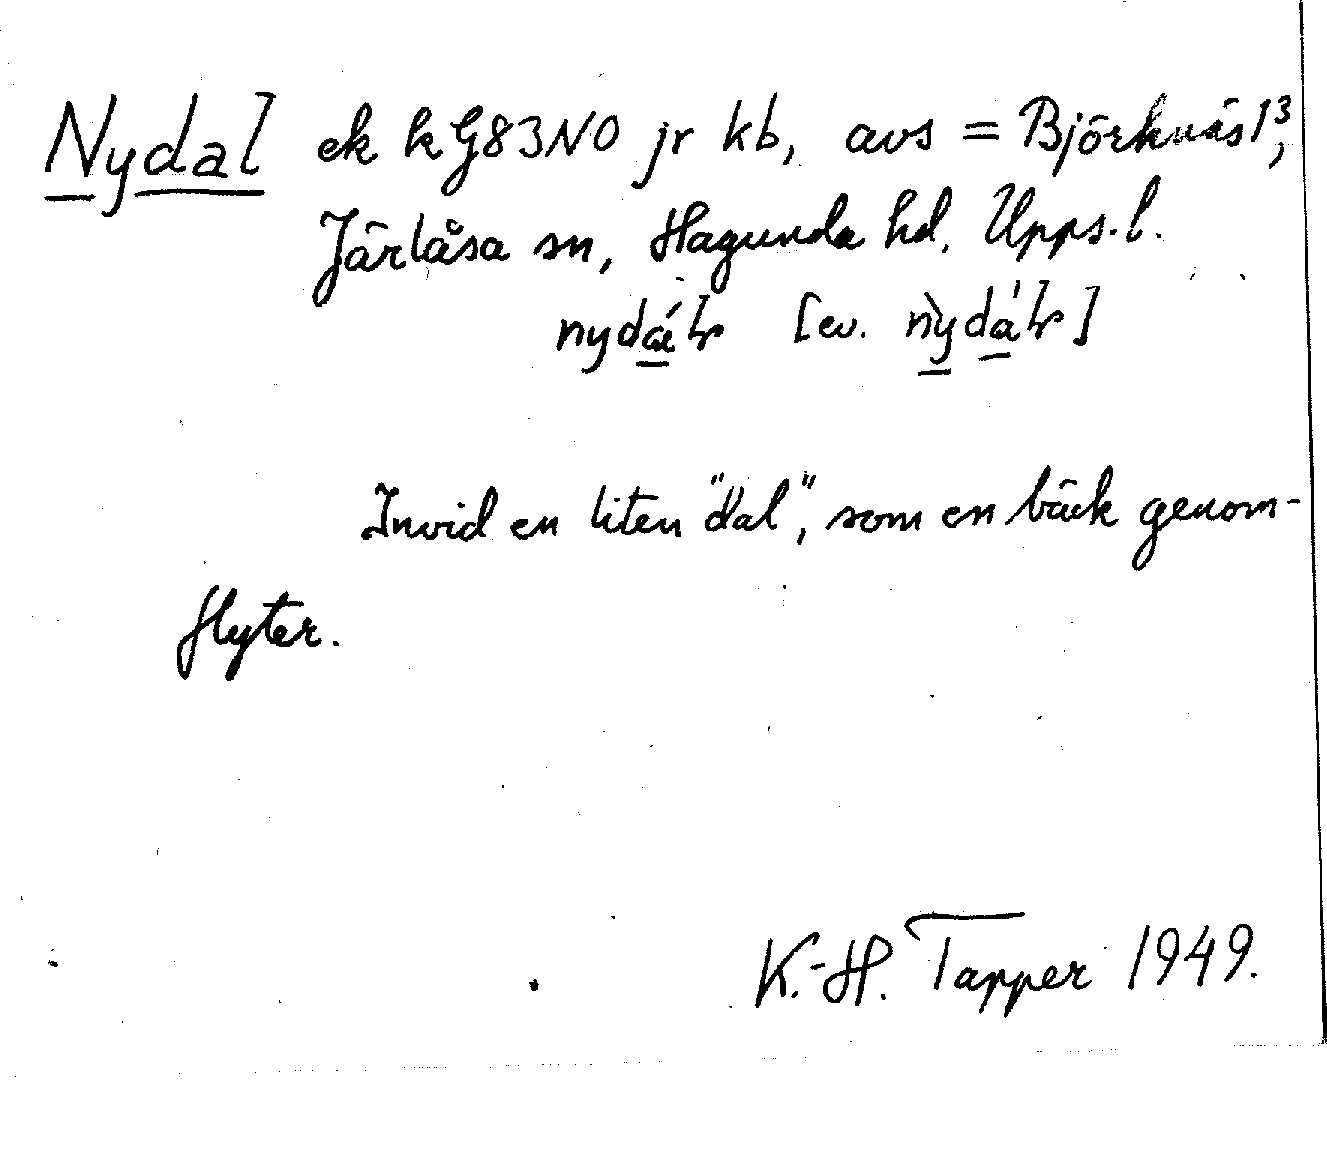 Nydal ek k G83NO jr kb, avs = Björknäs 1³,
Järlåsa sn, Hagunda hd, Upps. l.
nydál [ev. nỳdál]
Invid en liten "dal", som en bäck genom-
flyter.
K.-H. Tapper 1949.